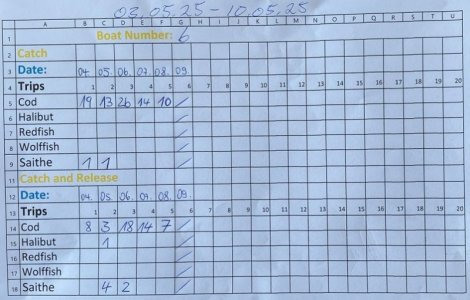 03.05.25 - 10.05.25
A B C D E F G H I J K L M N O P Q R S T U
1 Boat Number: 6
2 Catch
3 Date: 04. 05. 06. 07. 08. 09
4 Trips 1 2 3 4 5 6 7 8 9 10 11 12 13 14 15 16 17 18 19 20
5 Cod 19 13 26 14 10 /
6 Halibut /
7 Redfish /
8 Wolffish /
9 Saithe 1 1 /
11 Catch and Release
12 Date: 04. 05. 06. 07. 08. 09.
13 Trips 1 2 3 4 5 6 7 8 9 10 11 12 13 14 15 16 17 18 19 20
14 Cod 8 3 18 14 7 /
15 Halibut 1 /
16 Redfish /
17 Wolffish /
18 Saithe 4 2 /